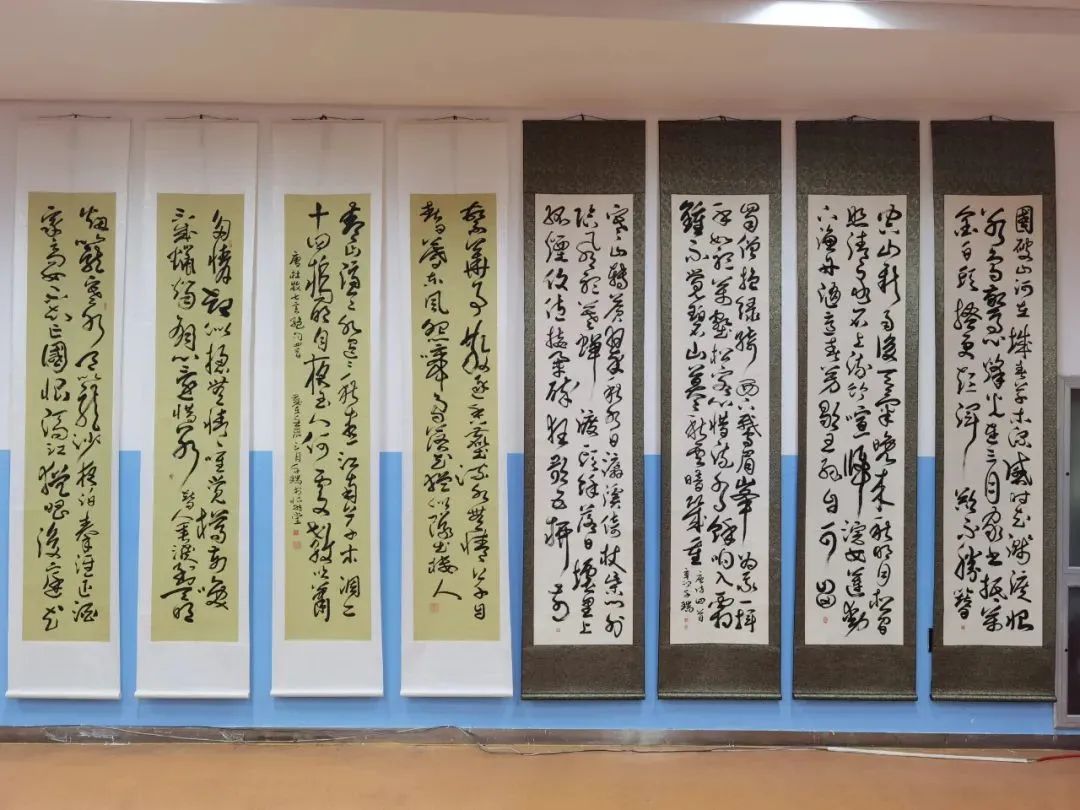 國破山河在城春草木深感时花溅泪恨
别鸟惊心烽火连三月家书抵万
金白头搔更短浑欲不勝簪
空山新雨後天氣晚来秋明月松間
照清泉石上流竹喧归浣女莲动
下渔舟随意春芳歇王孙自可留
蜀僧抱绿绮西下峨眉峰为我一挥
手如听万壑松客心洗流水馀响入霜
鐘不觉碧山暮秋雲暗几重
唐诗四首
寒山转苍翠秋水日潺湲倚杖柴门外
临风听暮蝉渡头馀落日墟里上
孤煙復值接舆醉狂歌五柳前
繁華事散逐香塵流水無情草自
春日暮東風怨啼鳥落花猶似墜楼人
青山隱隱水迢迢秋盡江南草木凋二
十四橋明月夜玉人何處教吹簫
唐杜牧七言絕句四首
多情却似總無情唯覺樽前笑
不成蠟燭有心還惜別替人垂淚到天明
烟籠寒水月籠沙夜泊秦淮近酒
家商女不知亡國恨隔江猶唱後庭花